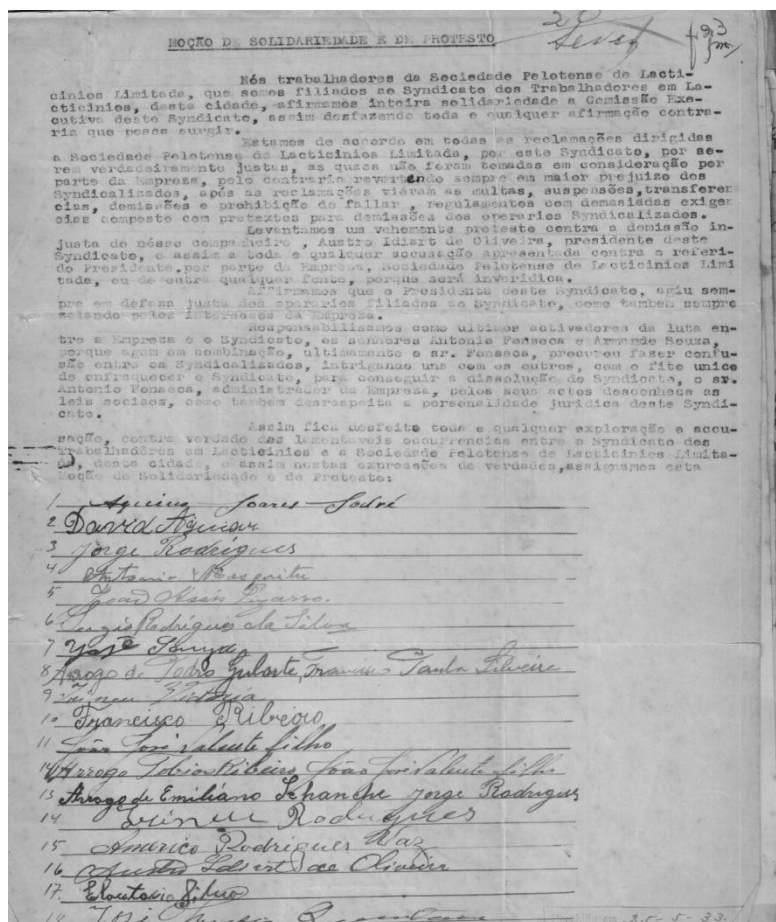 MOÇÃO DE SOLIDARIEDADE E DE PROTESTO
Nós trabalhadores da Sociedade Pelotense de Lacti-
cinios Limitada, que somos filiados ao Syndicato dos Trabalhadores em La-
cticinios, desta cidade, afirmamos inteira solidariedade a Comissão Exe-
cutiva deste Syndicato, assim desfazendo toda e qualquer afirmação contra-
ria que possa surgir.
Estamos de accordo em todas as reclamações dirigidas
a Sociedade Pelotense de Lacticinios Limitada, por este Syndicato, por se-
rem verdadeiramente justas, as quaes não foram tomadas em consideração por
parte da Empreza, pelo contrario revertendo sempre em maior prejuizo dos
Syndicalizados, após as reclamações viéram as multas, suspensões, transferen
cias, demissões e prohibição de fallar, regulamentos com demasiadas exigen
cias composto com pretextos para demissões dos operarios Syndicalizados.
Levantamos um vehemente protesto contra a demissão in-
justa de nósso companheiro, Austro Idiart de Oliveira, presidente deste
Syndicato, e assim a toda e qualquer accusação apresentada contra o referi-
do Presidente, por parte da Empreza, Sociedade Pelotense de Lacticinios Limi
tada, ou de outra qualquer fonte, porque será inveridica.
Affirmamos que o Presidente deste Syndicato, agiu sem-
pre em defeza justa dos operarios filiados ao Syndicato, como tambem sempre
zelando pelos interesses da Empreza.
Responsabilisamos como ultimos activadores da luta en-
tre a Empreza e o Syndicato, os senhores Antonio Fonseca e Armando Souza,
porque agem em combinação, ultimamente o sr. Fonseca, procurou fazer confu-
são entre os Syndicalizados, intrigando uns com os outros, com o fito unico
de enfraquecer o Syndicato, para conseguir a dissolução do Syndicato, o sr.
Antonio Fonseca, administrador da Empreza, pelos seus actos desconhece as
leis sociaes, como tambem desrespeita a personalidade juridica deste Syndi-
cato.
Assim fica desfeito toda e qualquer exploração e accu-
sação, contra verdade das lamentaveis occurrencias entre o Syndicato dos
Trabalhadôres em Lacticinios e a Sociedade Pelotense de Lacticinios Limita-
da, desta cidade, e assim nestas expressões de verdades, assignamos esta
Moção de Solidariedade e de Protesto:
1 Soares
2 David Aguiar
3 Jorge Rodrigues
4 Antonio Mesquita
5 Assis Pizarro.
6 Rodrigues da Silva
7 José
8 Arrogo de Pedro Gularte, Francisco Paula Silveira
9
10 Francisco Ribeiro
11 João José Valente filho
12 Arrogo Tobias Ribeiro João José Valente filho
13 Arrogo de Emiliano Jorge Rodrigues
14 Irineu Rodrigues
15 Americo Rodrigues Vaz
16 Austro Idiart de Oliveira
17 Silva
18